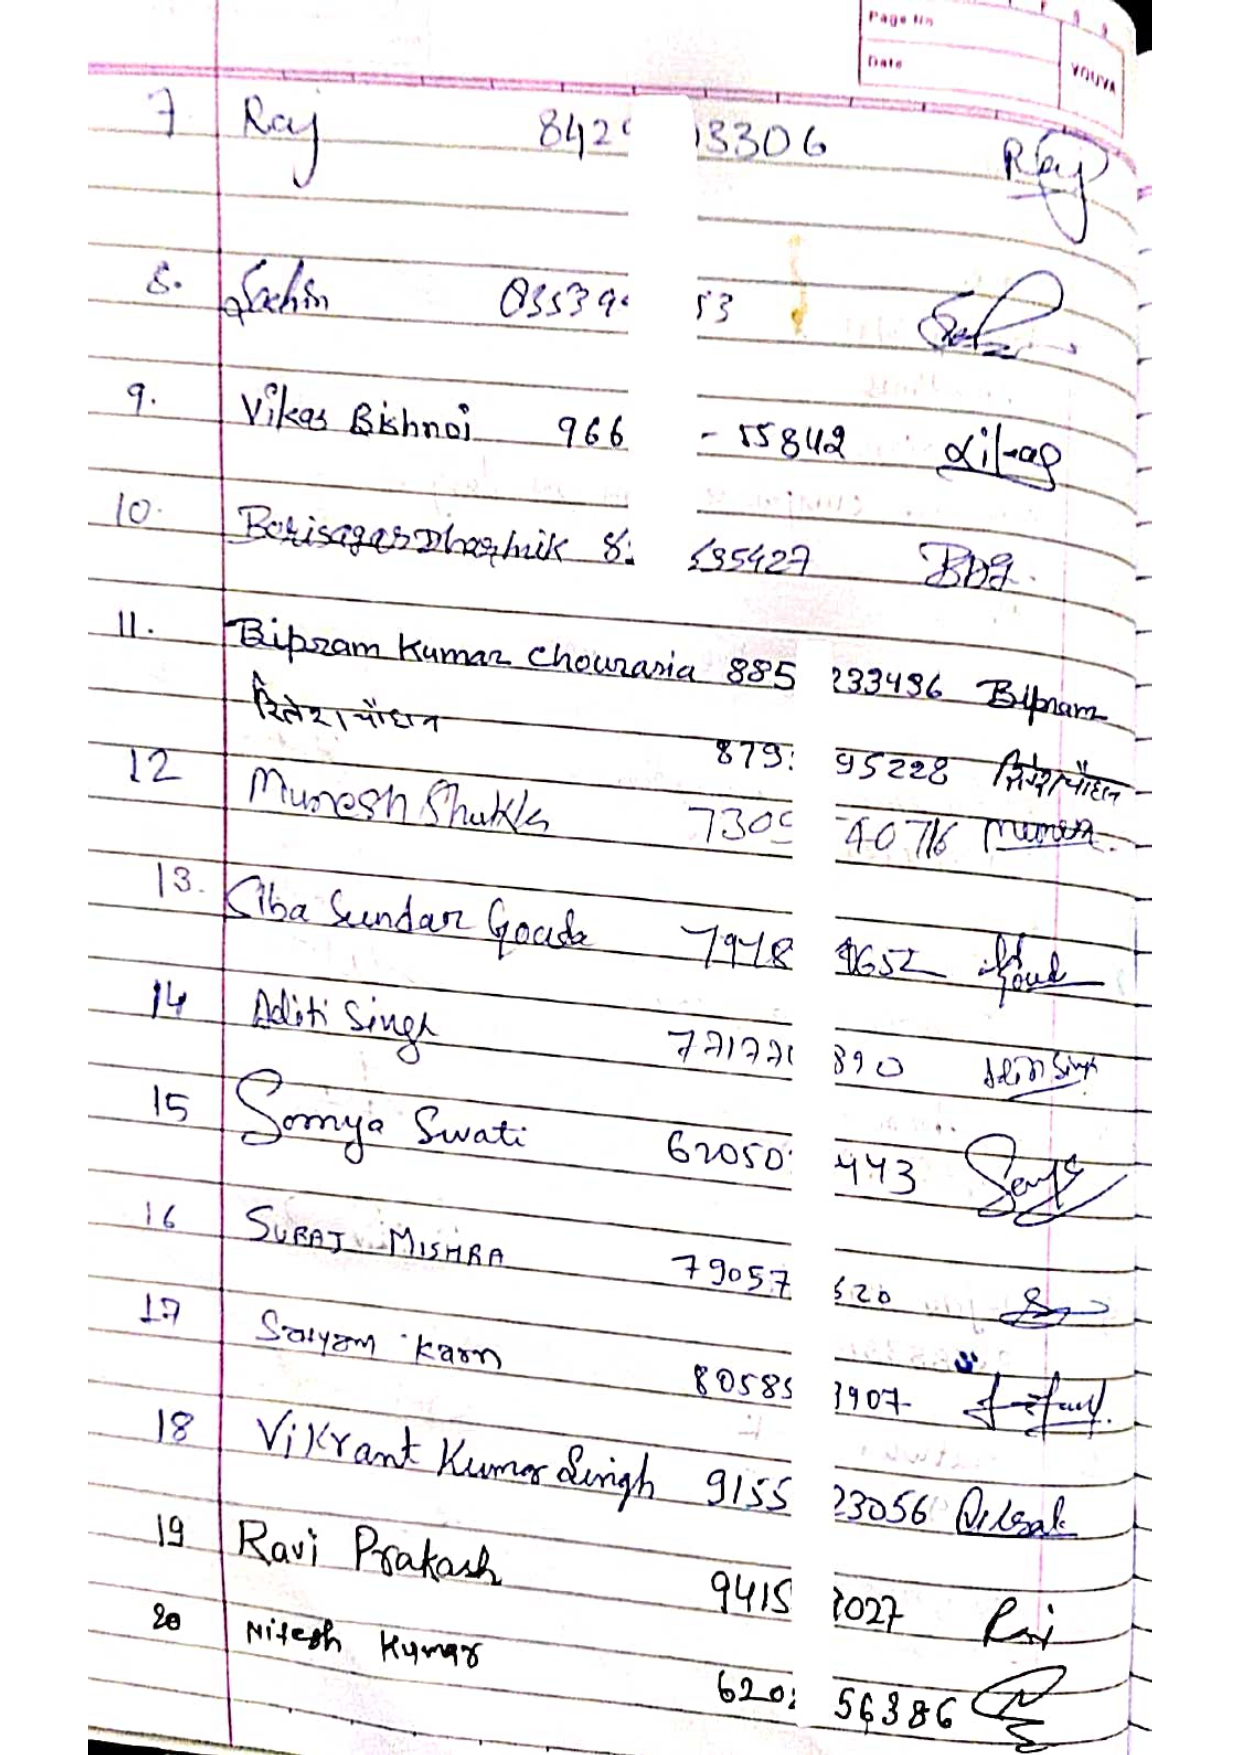 Page No
Date
YOUVA
7 Raj 842 13306 Raj
8. Sachin 53
9. Vikas Bishnoi 966 - 55842
10. Borisagar Dharmik 8 595427 BDG
11. Bipram Kumar Chourasia 885 233496 Bipram
रितेश पौधान 879 95228 रितेश पौधान
12 Munesh Shukla 730 40716 Munesh
13. Siba Sundar Gouda 7978 9652 Goud
14 Aditi Singh 77177 890 Aditi Singh
15 Somya Swati 62050 443
16 SURAJ MISHRA 79057 520
17 Satyam Karn 80585 3907
18 Vikrant Kumar Singh 9155 23056
19 Ravi Prakash 9415 2027 Ravi
20 Nitesh Kumar 620 56386